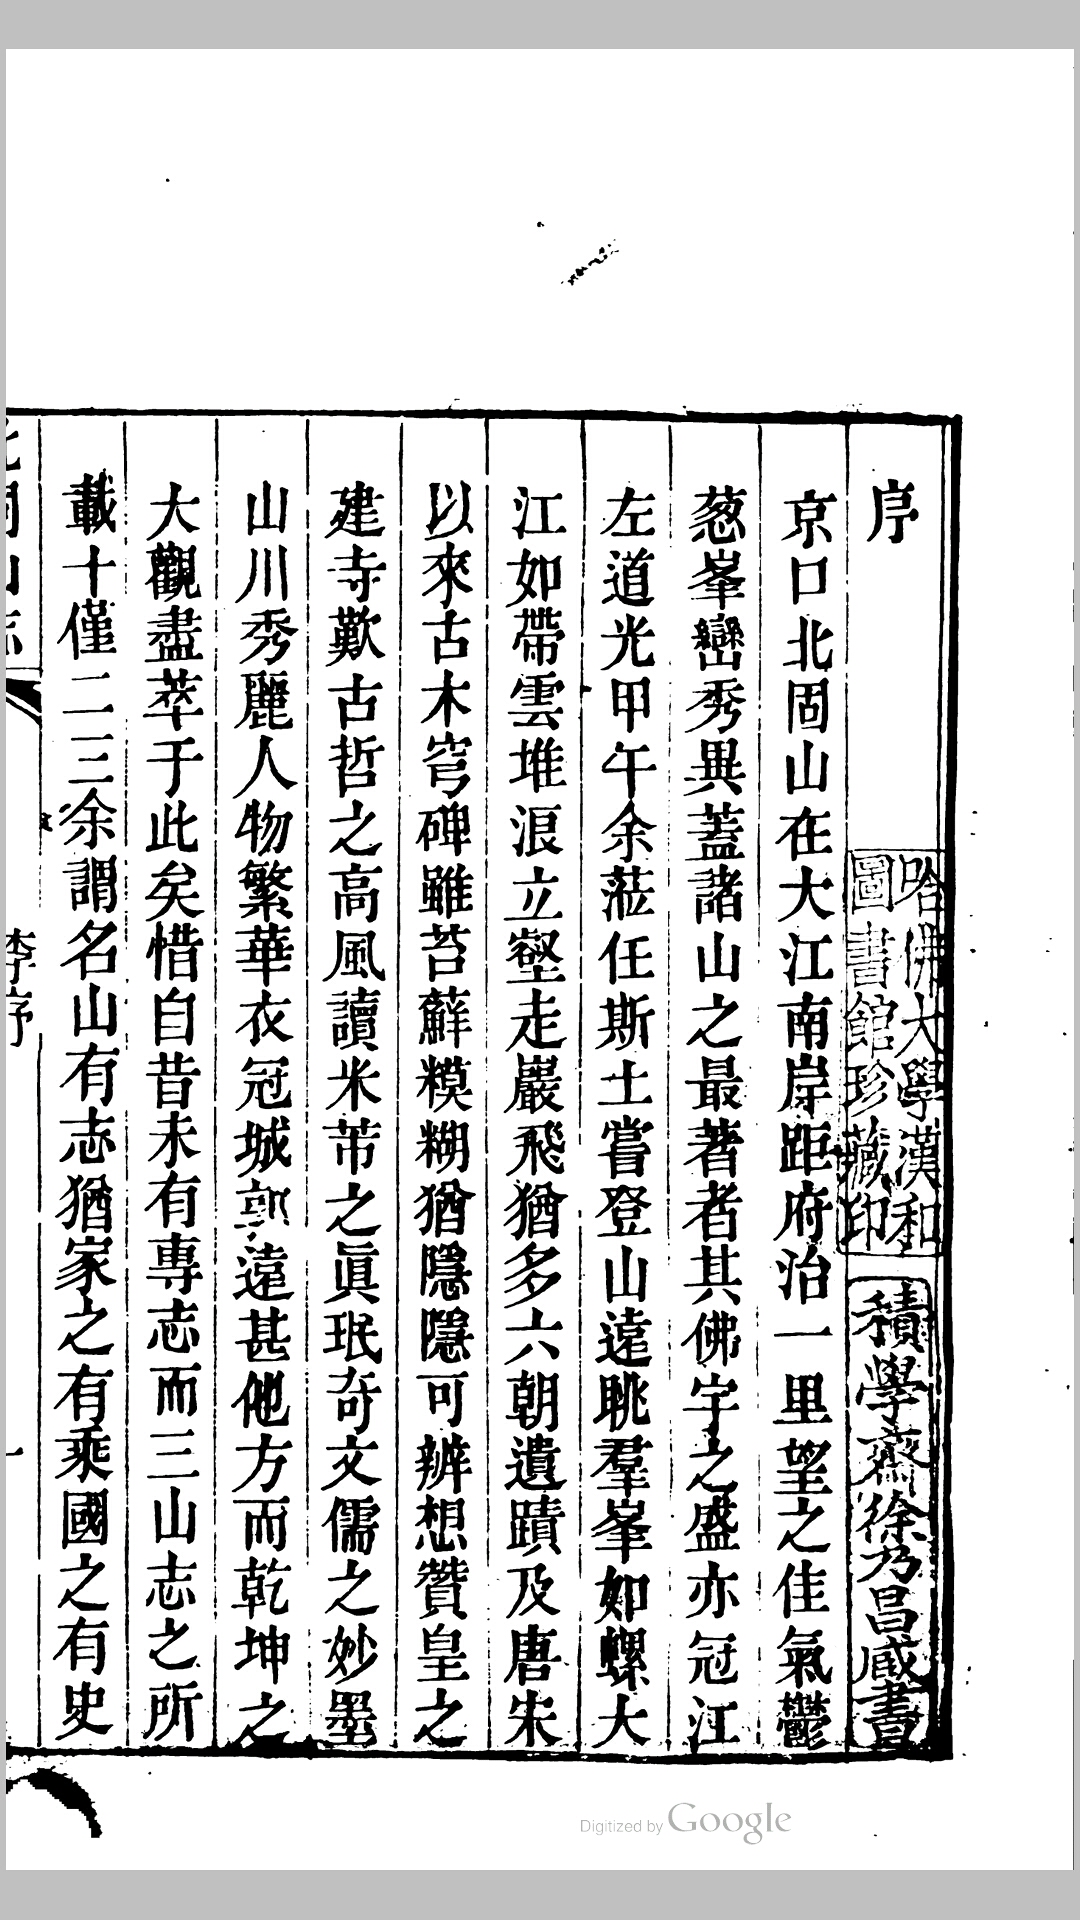 序
哈佛大學漢和
圖書館珍藏印
積學齋徐乃昌藏書
京口北固山在大江南岸距府治一里望之佳氣鬱
葱峯巒秀異蓋諸山之最著者其佛宇之盛亦冠江
左道光甲午余蒞任斯土嘗登山遠眺羣峯如螺大
江如帶雲堆浪立壑走巖飛猶多六朝遺蹟及唐宋
以來古木穹碑雖苔蘚糢糊猶隱隱可辨想贊皇之
建寺歎古哲之高風讀米芾之眞珉奇文儒之妙墨
山川秀麗人物繁華衣冠城郭遠甚他方而乾坤之
大觀盡萃于此矣惜自昔未有專志而三山志之所
載十僅二三余謂名山有志猶家之有乘國之有史
北固山志
李序
一
Digitized by Google